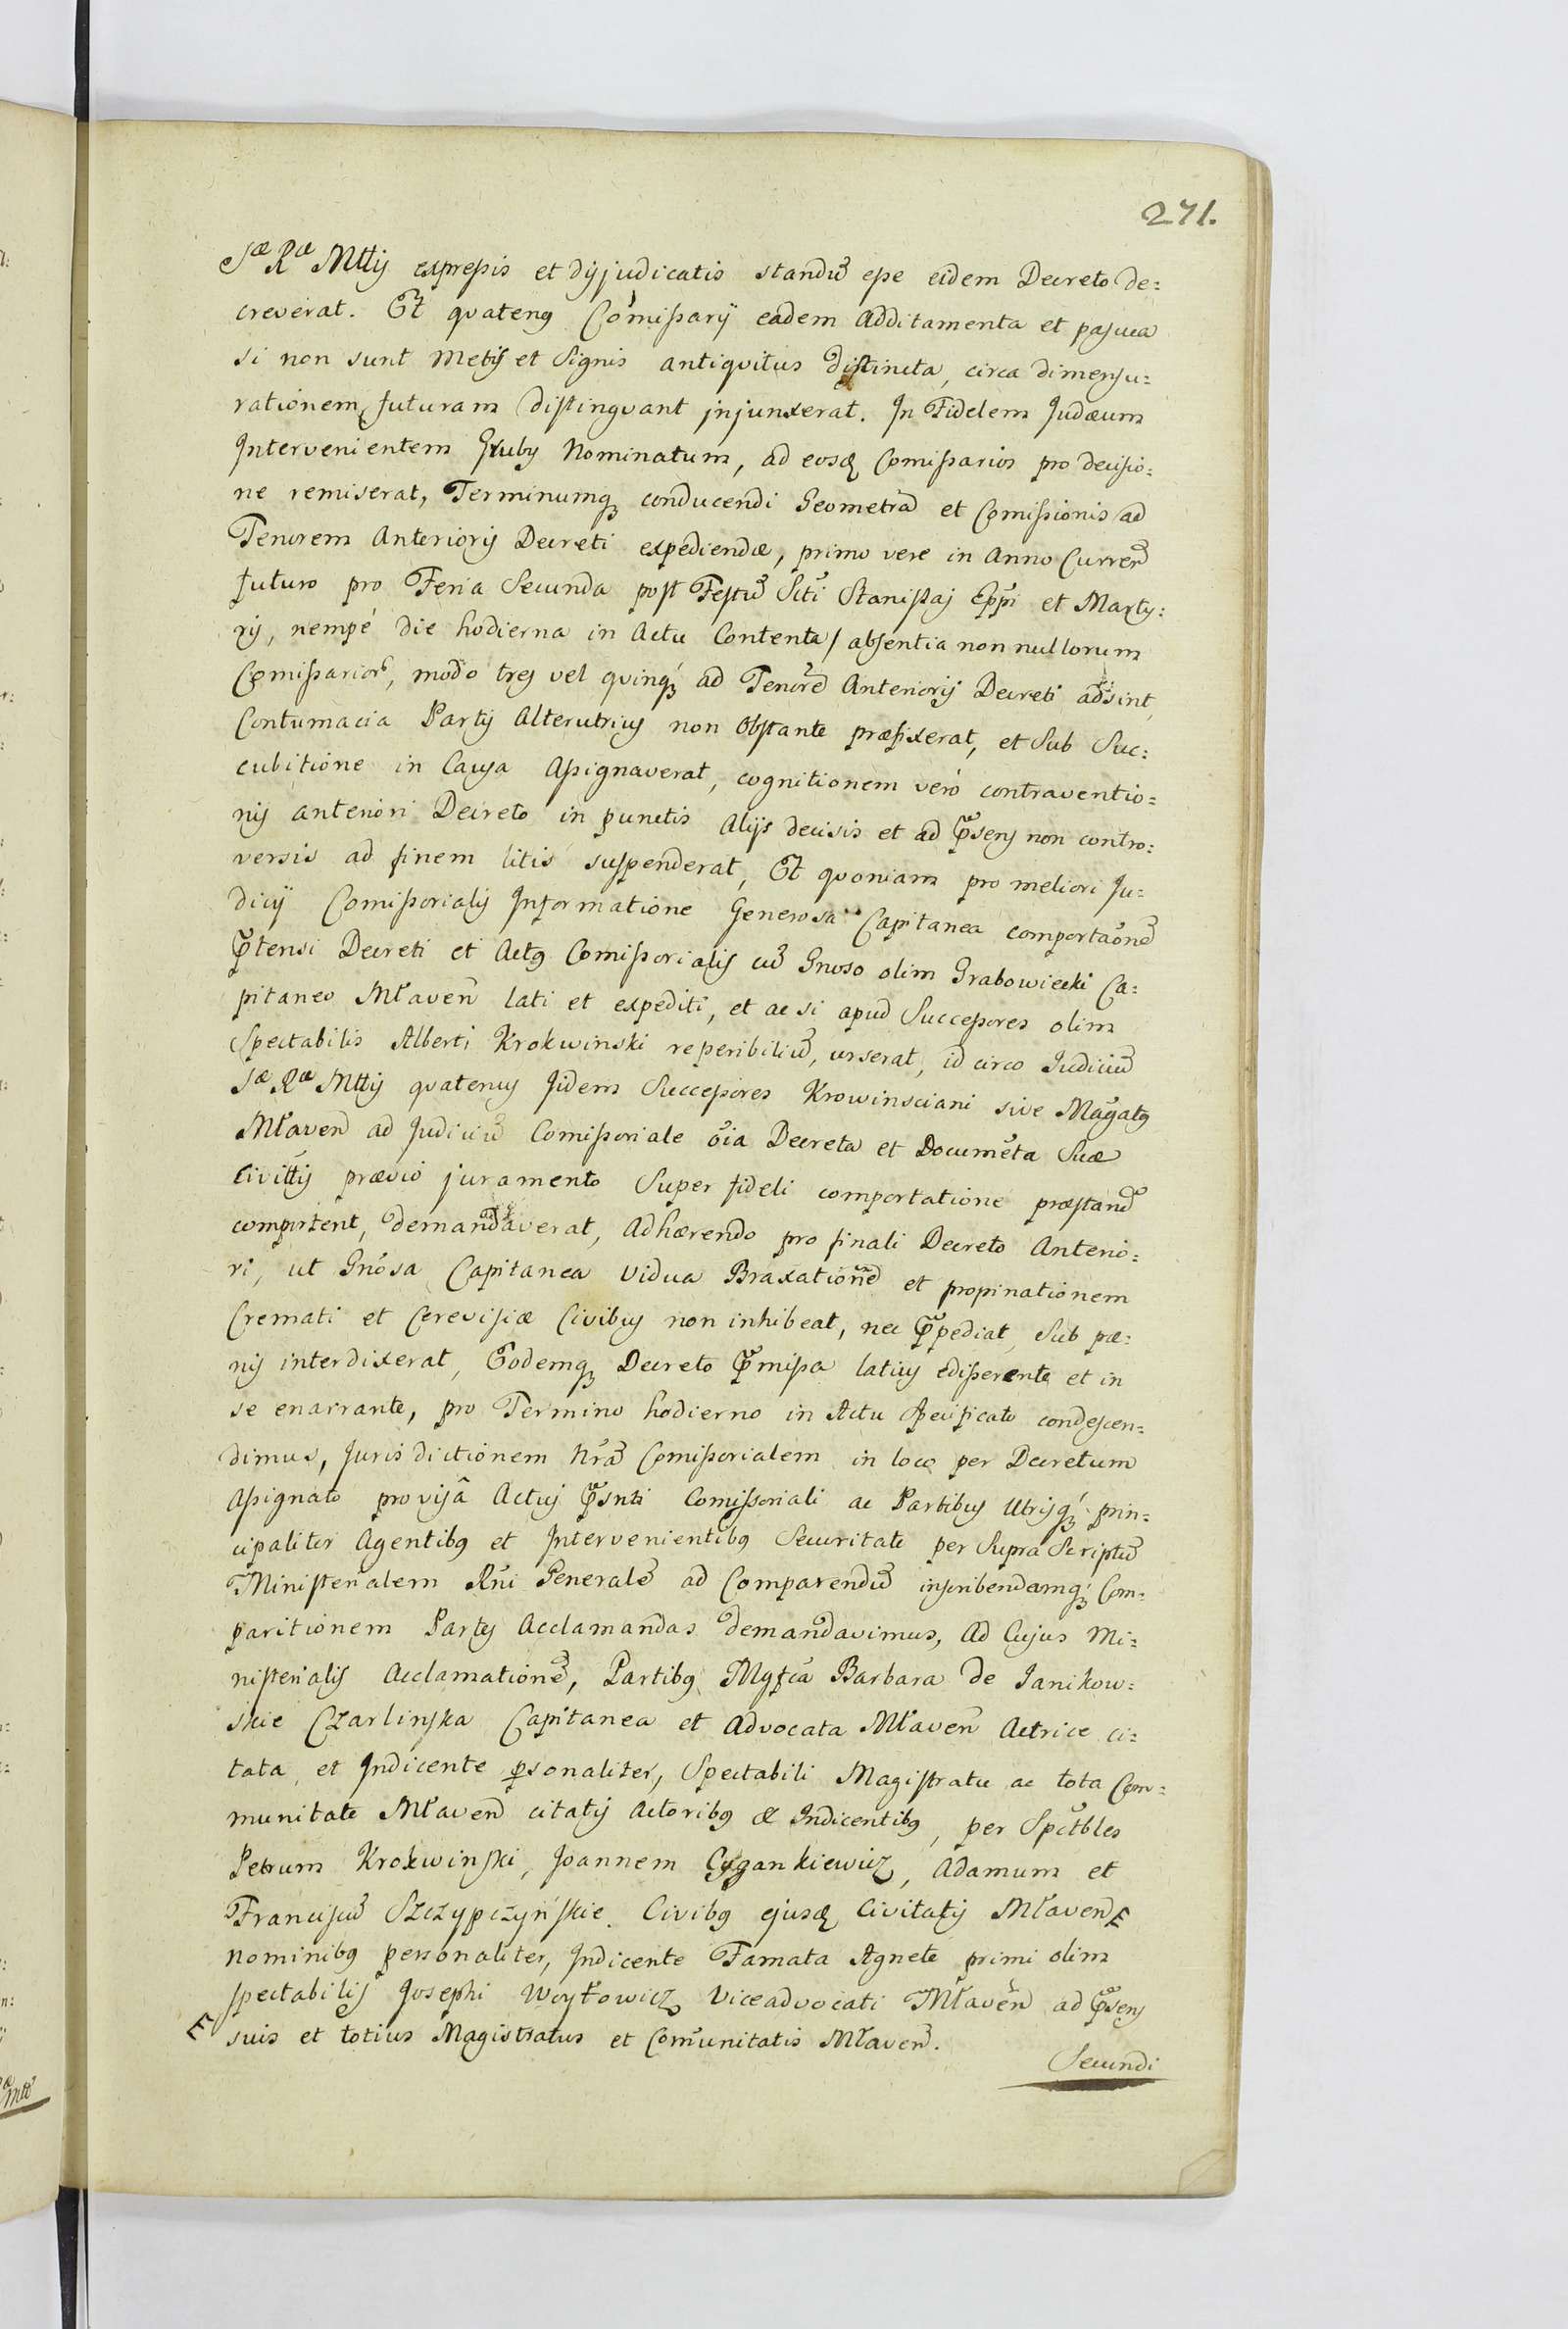 271.
Sæ Ræ Mttis expressis et dijudicatis standū esse eidem Decreto de=
creverat. Et quatenq Comissarij eadem additamenta et pascua
si non sunt Metis et Signis antiqvitus distincta, circa dimensu=
rationem futuram distingvant injunxerat. In Fidelem Judæum
Intervenientem Gruby Nominatum, ad eosq Comissarios pro decisio=
ne remiserat, Terminumq conducendi Geometrā et Comissionis ad
Tenorem Anterioris Decreti expediendæ, primo vere in Anno Curreñ
futuro pro Feria Secunda post Festū Scti Stanislaj Eppi et Marty=
ris, nempé die hodierna in Actu Contenta / absentia non nullorum
Comissarior, modo tres vel qvinq ad Tenorē Anterioris Decreti adsint,
Contumacia Partis Alterutrius non Obstante præfixerat, et Sub Suc=
cubitione in Causa Assignaverat, cognitionem veró contraventio=
nis anteriori Decreto in punctis Alijs decisis et ad pñsens non contro=
versis ad finem litis suspenderat, Et qvoniam pro meliori Ju=
dicij Comissorialis Informatione Generosa Capitanea comportaōnē
ptensi Decreti et Actq Comissorialis cū Gnoso olim Grabowiecki Ca=
pitaneo Mławeñ lati et expediti, et ac si apud Successores olim
Spectabilis Alberti Krokwinski reperibiliū, urserat, id circo Judiciū
Sæ Ræ Mttis qvatenus Jidem Successores Krowinsciani sive Magatq
Mławeñ ad Judiciū Comissoriale oia Decreta et Documēta Suæ
Civittis prævio juramento Super fideli comportatione præstand
comportent, demandaverat, Adhærendo pro finali Decreto Anterio=
ri, ut Gnosa Capitanea Vidua Braxationē et propinationem
Cremati et Cerevisiæ Civibus non inhibeat, nec ppediat, Sub pæ=
nis interdixerat, Eodemq Decreto pmissa latius edisserente et in
se enarrante, pro Termino hodierno in Actu Specificato condescen=
dimus, Jurisdictionem Nrā Comissorialem in loco per Decretum
Assignato provisâ Actui psnti Comissoriali ac Partibus Utrisq prin=
cipaliter Agentibq et Intervenientibq Securitate per Supra Scriptū
Ministerialem Rni Generalē ad Comparendū inscribendamq Com=
paritionem Partes Acclamandas demandavimus, Ad Cujus Mi=
nisterialis Acclamationē, Partibq Mgfca Barbara de Janikow=
skie Czarlinska Capitanea et Advocata Mławeñ Actrice ci=
tata et Indicente psonaliter, Spectabili Magistratu ac tota Com=
munitate Mławeñ citatis Actoribq & Indicentibq, per Spctbles
Petrum Krokwinski, Joannem Cygankiewicz, Adamum et
Franciscū Szczypczyńskie Civibq ejusq Civitatis Mławeñ E
Nominibq personaliter, Indicente Famata Agnete primi olim
spectabilis Josephi Woytowicz Viceadvocati Mławeñ ad psens
E suis et totius Magistratus et Comunitatis Mławeñ.
Secundi